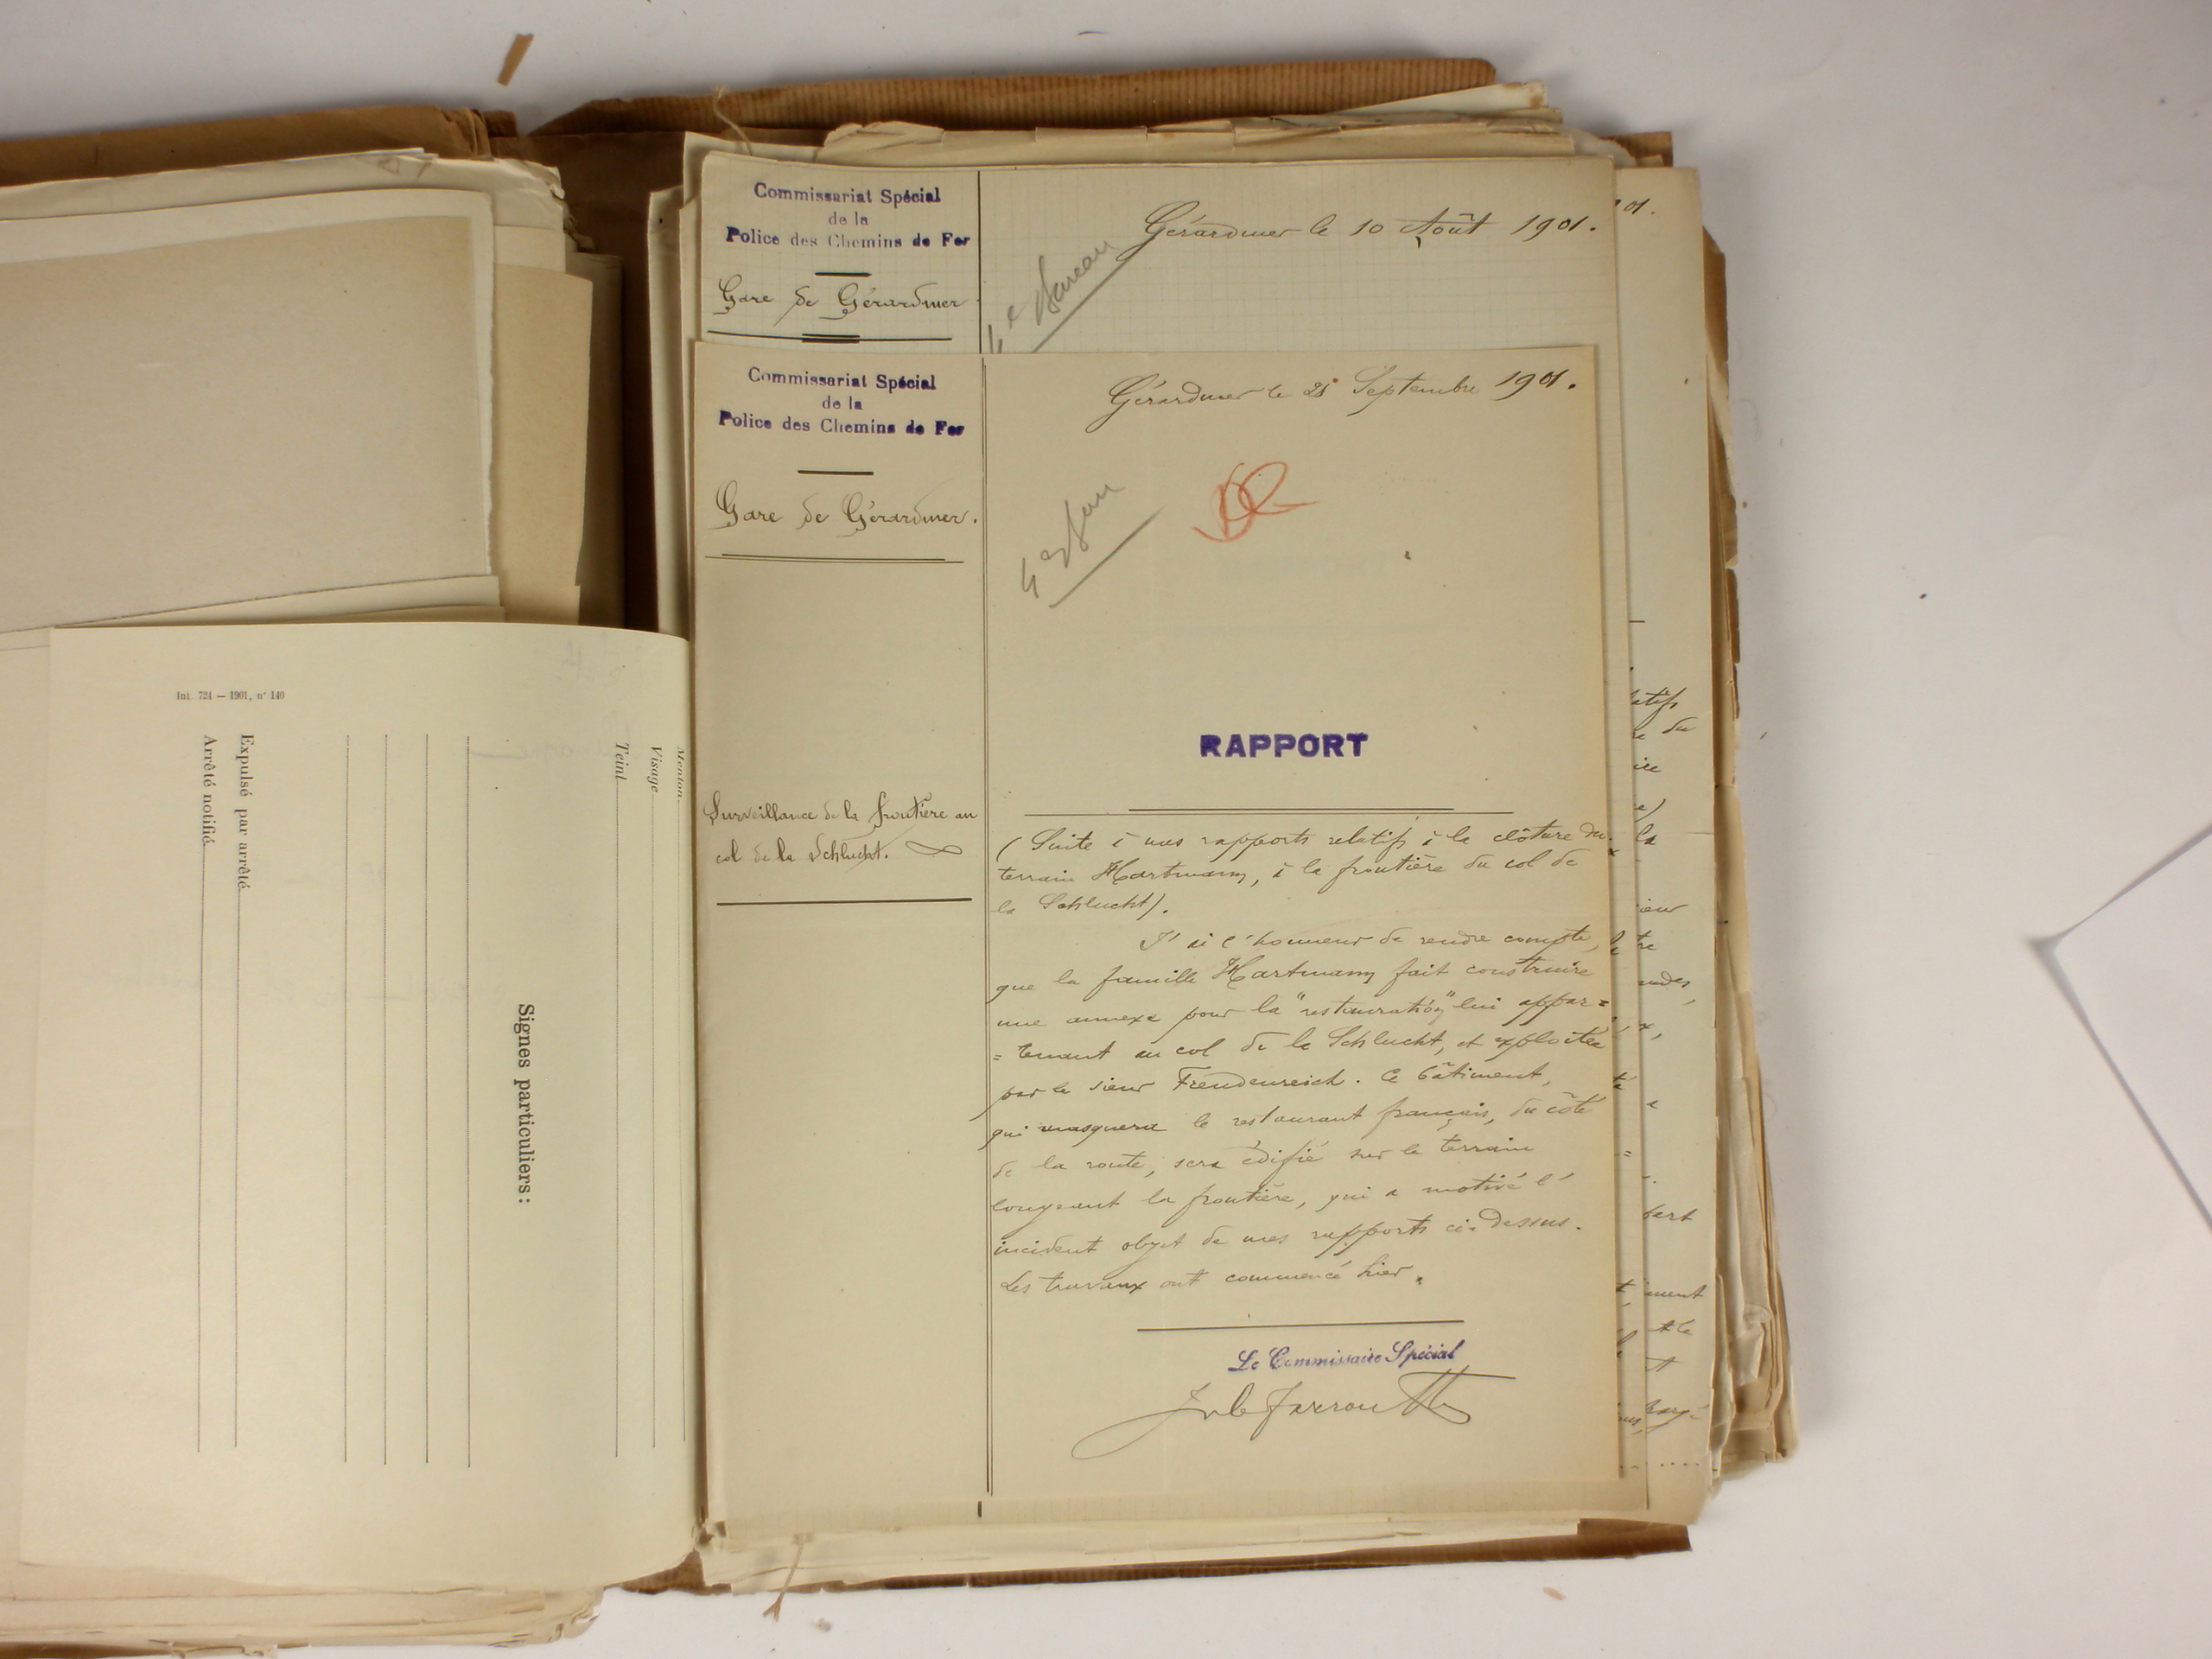 Commissariat Spécial
de la
Police des Chemins de Fer
Gare de Gérardmer
Gérardmer le 10 Août 1901.
4e Bureau
Commissariat Spécial
de la
Police des Chemins de Fer
Gare de Gérardmer.
Surveillance de la frontière au
col de la Schlucht.
Gérardmer le 25 Septembre 1901.
4e Bureau
RAPPORT
(Suite à mes rapports relatifs à la clôture du
terrain Hartmann, à la frontière du col de
la Schlucht).
J'ai l'honneur de rendre compte,
que la famille Hartmann fait construire
une annexe pour la "restauration" lui appar=
=tenant au col de la Schlucht, et exploitée
par le sieur Freudenreich. Ce bâtiment,
qui masquera le restaurant français, du côté
de la route, sera édifié sur le terrain
longeant la frontière, qui a motivé l'
incident objet de mes rapports ci-dessus.
Les travaux ont commencé hier.
Le Commissaire Spécial
Int. 724 — 1901, n° 140
Menton
Visage
Teint
Signes particuliers:
Expulsé par arrêté
Arrêté notifié